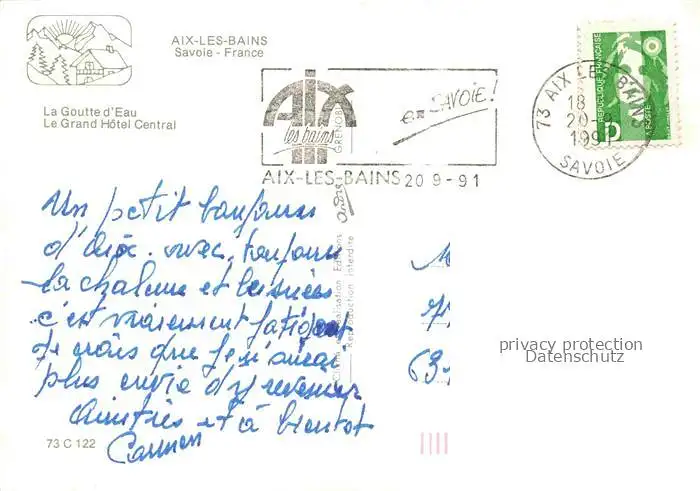 AIX-LES-BAINS
Savoie - France
La Goutte d'Eau
Le Grand Hôtel Central
AIX
les bains
en SAVOIE!
AIX-LES-BAINS 20 9-91
73 AIX LES BAINS
18
20-9
1991
SAVOIE
REPUBLIQUE FRANÇAISE
LA POSTE
GRENOBLE
Editions
Reproduction interdite
Un petit bonjour
d'Aix. avec toujours
la chaleur et
c'est vraiement fatigant
Je crois que je n'aurai
plus envie d'y revenir
Amitiés et à bientot
Carmen
63
73 C 122
privacy protection
Datenschutz